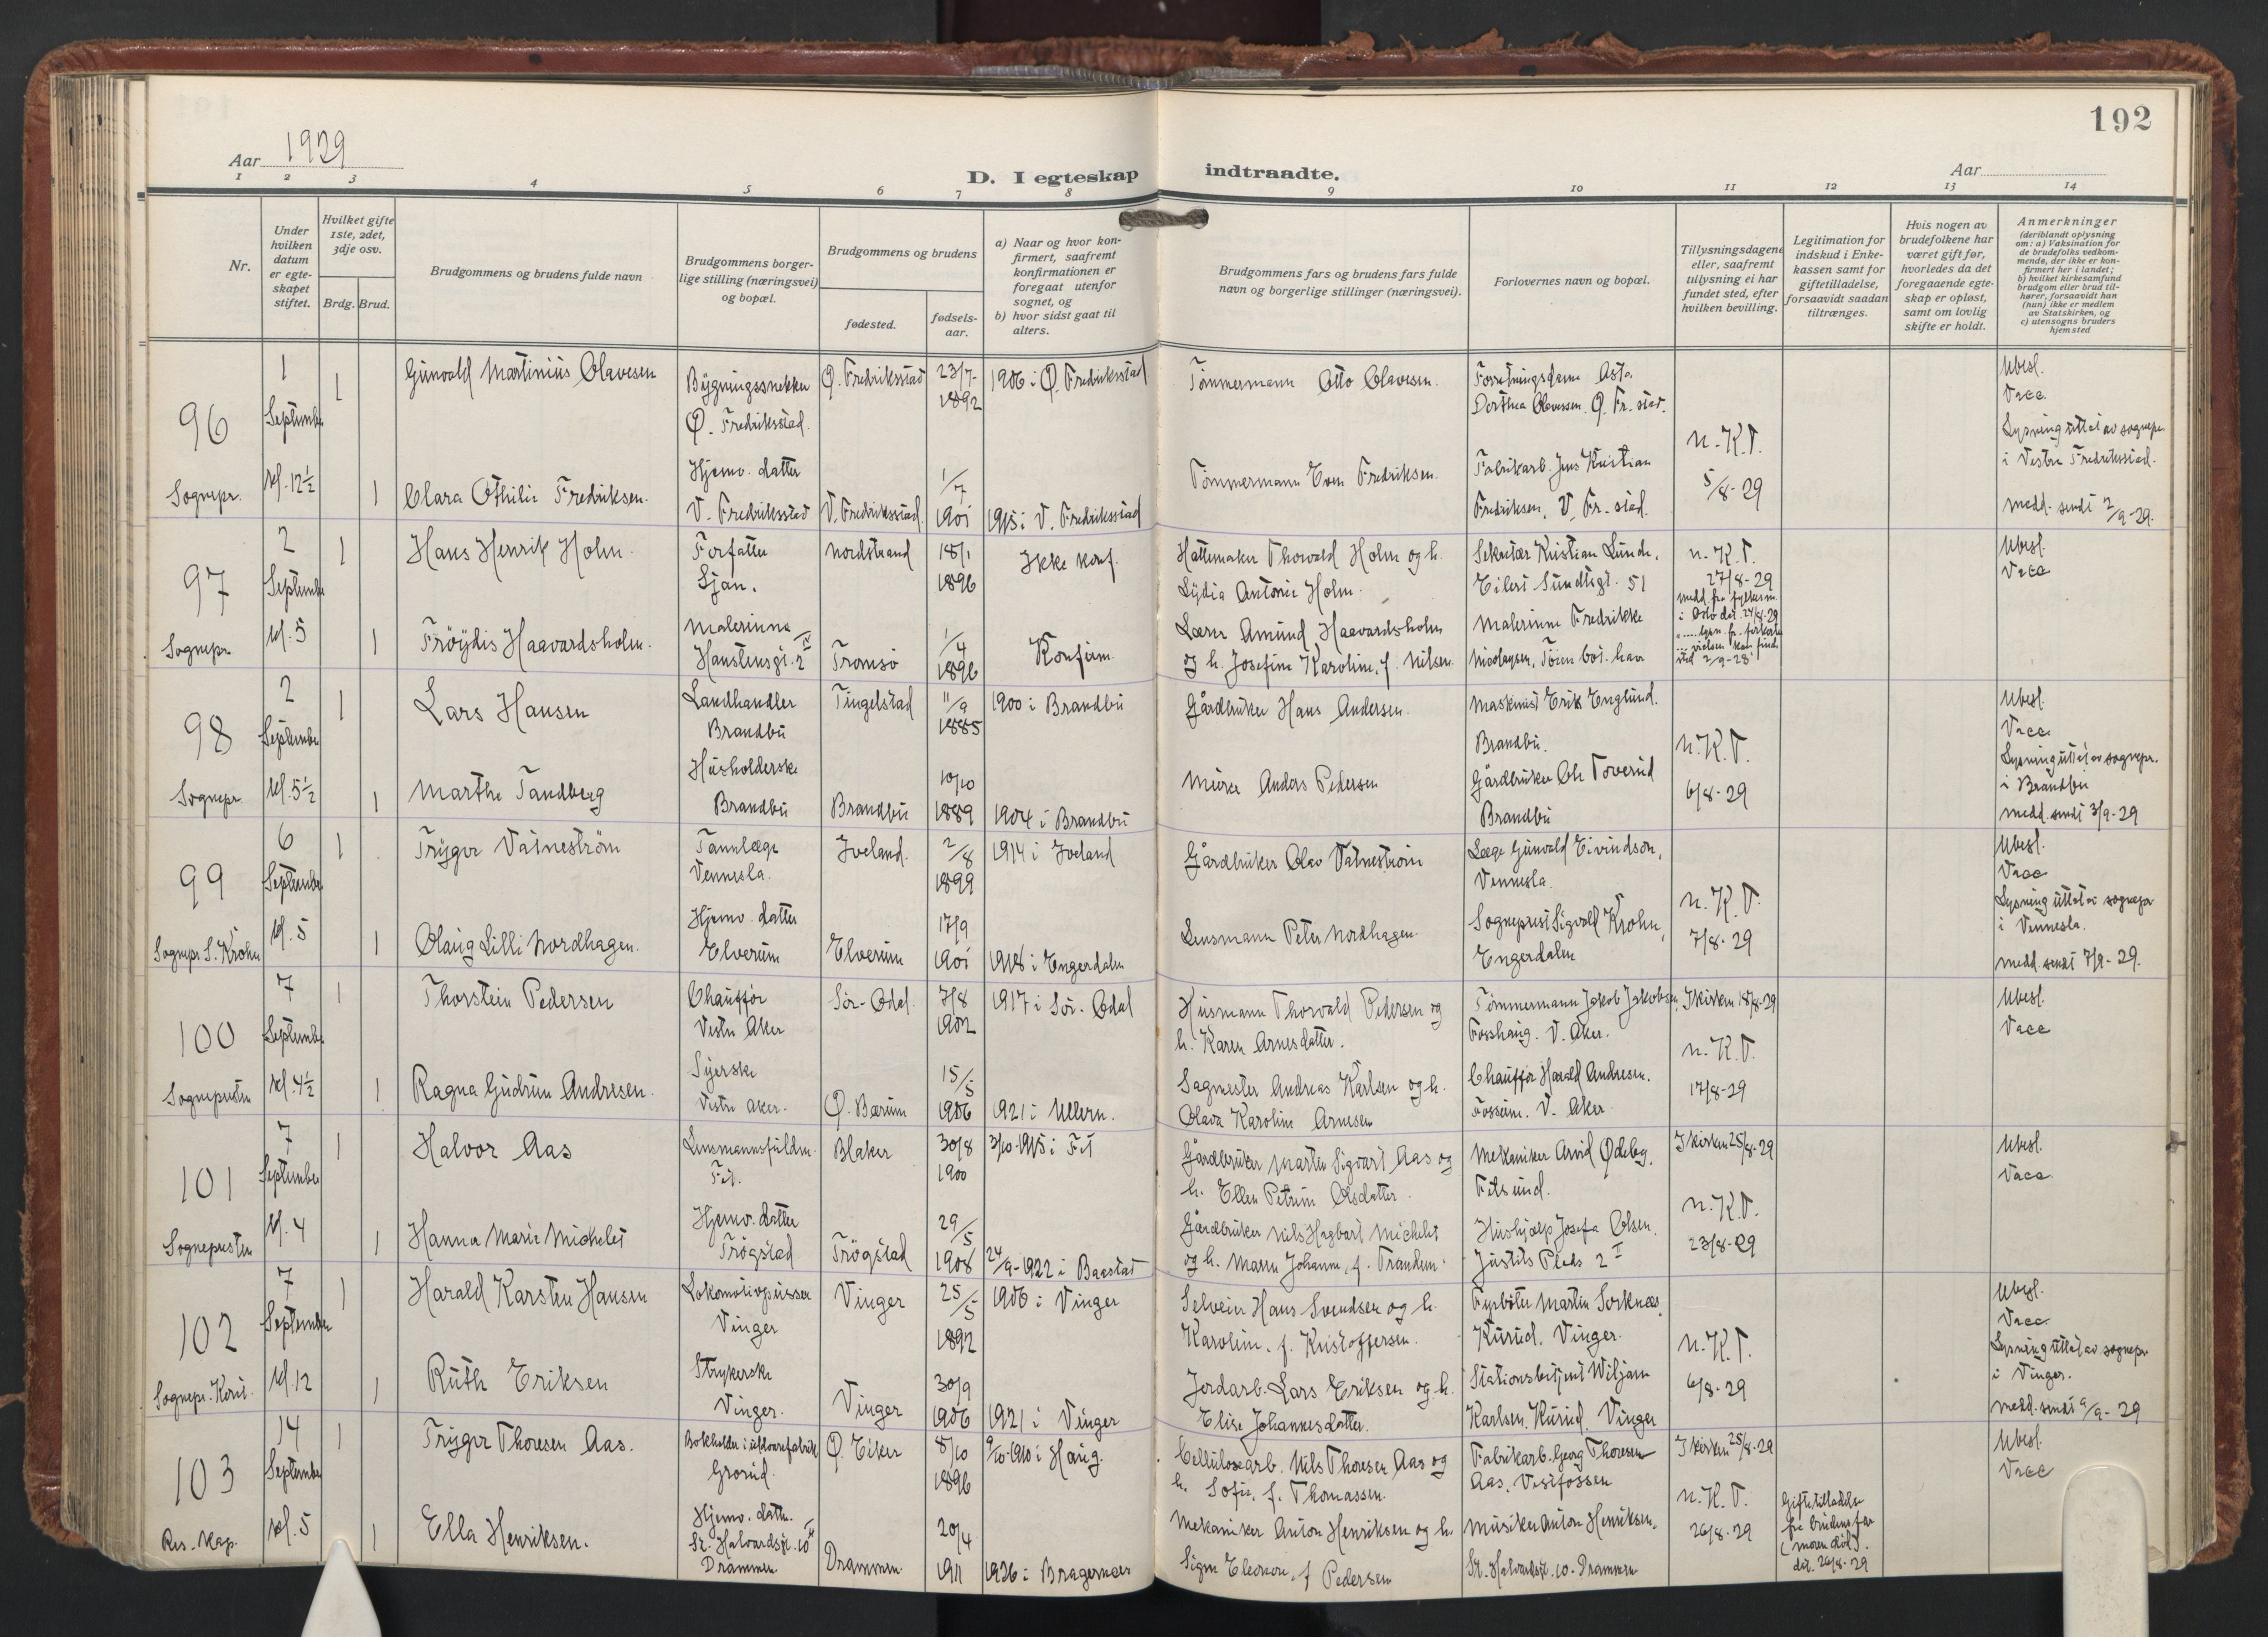 192
Aar 1929
Aar
D. I egteskap indtraadte.
1 2 3 4 5 6 7 8 9 10 11 12 13 14
Nr.
Under hvilken datum er egteskapet stiftet.
Hvilket gifte 1ste, 2det, 3dje osv.
Brdg. Brud.
Brudgommens og brudens fulde navn
Brudgommens borgerlige stilling (næringsvei) og bopæl.
Brudgommens og brudens
fødested.
fødselsaar.
a) Naar og hvor konfirmert, saafremt konfirmationen er foregaat utenfor sognet, og
b) hvor sidst gaat til alters.
Brudgommens fars og brudens fars fulde navn og borgerlige stillinger (næringsvei).
Forlovernes navn og bopæl.
Tillysningsdagene eller, saafremt tillysning ei har fundet sted, efter hvilken bevilling.
Legitimation for indskud i Enkekassen samt for giftetilladelse, forsaavidt saadan tiltrænges.
Hvis nogen av brudefolkene har været gift før, hvorledes da det foregaaende egteskap er opløst, samt om lovlig skifte er holdt.
Anmerkninger
(deriblandt oplysning om: a) Vaksination for de brudefolks vedkommende, der ikke er konfirmert her i landet;
b) hvilket kirkesamfund brudgom eller brud tilhører, forsaavidt han (hun) ikke er medlem av Statskirken, og
c) utensogns bruders hjemsted
96 Sognepr.
1 September kl. 12½
1 Gunvald Martinius Olavesen
Bygningssnekker Ø. Fredriksstad
Ø. Fredriksstad 23/7-1892
1906 i Ø. Fredriksstad
Tømmermann Otto Olavesen.
Forretningsdame Asta Dorthea Olavesen. Ø. Fr.stad.
1 Clara Othilie Fredriksen.
Hjemv. datter V. Fredriksstad
V. Fredriksstad 1/7 1901
1915 i V. Fredriksstad
Tømmermann Even Fredriksen.
Fabrikarb. Jens Kristian Fredriksen, V. Fr.stad.
n. K. T. 5/8-29
Ubesl.
Vacc.
Lysning uttat av sognepr. i Vestre Fredriksstad.
medd. sendt 2/9-29.
97 Sognepr.
2 September kl. 5
1 Hans Henrik Holm.
Forfatter Ljan.
Nordstrand 18/1 1896
Ikke konf.
Hattemaker Thorvald Holm og h. Lydia Antonie Holm.
Sekretær Kristian Lunde, Eilert Sundtsgt. 51
1 Frøydis Haavardsholm.
Malerinne
Tromsø 1/4 1896
Konfirm.
Lærer Amund Haavardsholm og h. Josefine Karoline, f. Nilsen
Malerinne Fredrikke
n. K. T. 27/8-29
Ubesl.
Vacc
98 Sognepr
2 September kl. 5½
1 Lars Hansen
Landhandler Brandbu
Tingelstad 11/9 1885
1900 i Brandbu
Gårdbruker Hans Andersen.
Maskinist Erik Englund. Brandbu.
1 Marthe Tandberg
Husholderske Brandbu
Brandbu 10/10 1889
1904 i Brandbu
Murer Anders Pedersen
Gårdbruker Ole Toverud Brandbu
n. K. T. 6/8-29
Ubesl.
Vacc.
Lysning uttat av sognepr. i Brandbu
medd. sendt 3/9-29
99 Sognepr. S. Krohn
6 September kl. 5
1 Trygve Vatnestrøm
Tannlæge Vennesla.
Iveland. 2/8 1899
1914 i Iveland
Gårdbruker Olav Vatnestrøm
Læge Gunvald Eivindson, Vennesla.
1 Olaug Lilli Nordhagen.
Hjemv. datter Elverum
Elverum 17/9 1901
1918 i Engerdalen
Lensmann Peter Nordhagen.
Sogneprest Sigvald Krohn, Engerdalen
n. K. T. 7/8-29
Ubesl.
Vacc
Lysning uttat av sognepr i Vennesla.
medd. sendt 7/9-29.
100 Sognepresten
7 September kl. 4½
1 Thorstein Pedersen
Chauffør Vestre Aker
Sør-Odal. 7/8 1902
1917 i Sør-Odal
Husmann Thorvald Pedersen og h. Karen Arnesdatter.
Tømmermann Jakob Jakobsen, Fosshaug. V. Aker.
1 Ragna Gudrun Andresen.
Syerske Vestre Aker.
Ø. Bærum 15/5 1906
1921 i Ullern.
Sagmester Andreas Karlsen og h. Olava Karoline Arnesen
Chauffør Harald Andresen. Fosseim. V. Aker
I kirken 18/8-29
n. K. T. 17/8-29
Ubesl.
Vacc
101 Sognepresten
7 September kl. 4
1 Halvor Aas
Lensmannsfuldm. Fet.
Blaker 30/8 1900
3/10-1915 i Fet
Gårdbruker Martin Sigvart Aas og h. Ellen Petrine Olsdatter.
Mekaniker Arvid Ødeby, Fetsund.
1 Hanna Marie Michelet
Hjemv. datter Trøgstad
Trøgstad 29/5 1908
24/9-1922 i Baastad
Gårdbruker Nils Hagbart Michelet og h. Maren Johanne, f. Trandem.
Hushjelp Josefa Olsen. Justits Plads 2 I
I kirken 25/8-29
n. K. T. 23/8-29
Ubesl.
Vacc.
102 Sognepr. Koril.
7 September kl. 12
1 Harald Karsten Hansen
Lokomotivpusser Vinger
Vinger 25/5 1892
1906 i Vinger
Selveier Hans Svendsen og h. Karoline, f. Kristoffersen.
Fyrbøter Martin Sorknæs, Kurud. Vinger.
1 Ruth Eriksen
Strykerske Vinger.
Vinger 30/9 1906
1921 i Vinger
Jordarb. Lars Eriksen og h. Elise Johannesdatter.
Stationsbetjent Wiljam Karlsen. Kurud. Vinger
n. K. T. 6/8-29
Ubesl.
Vacc.
Lysning uttat av sognepr i Vinger.
medd. sendt 9/9-29
103 Res. Kap.
14 September kl. 5
1 Trygve Thoresen Aas.
Bokholder i uldvarefabrik Grorud.
Ø. Eiker 8/10 1896
9/10-1910 i Haug.
Cellulosearb. Nils Thoresen Aas og h. Sofie, f. Thomassen.
Fabrikarb. Georg Thoresen Aas, Vestfossen
1 Ella Henriksen.
Hjemv. datter. St. Halvardsgt. 10 Drammen
Drammen. 20/4 1911
1926 i Bragernæs
Mekaniker Anton Henriksen og h. Signe Eleonore, f Pedersen
Musiker Anton Henriksen. St. Halvardsgt. 10. Drammen
I kirken 25/8-29
n. K. T. 26/8-29
Giftetilladelse fra brudens far (moren død). dat. 26/8-29
Ubesl.
Vacc